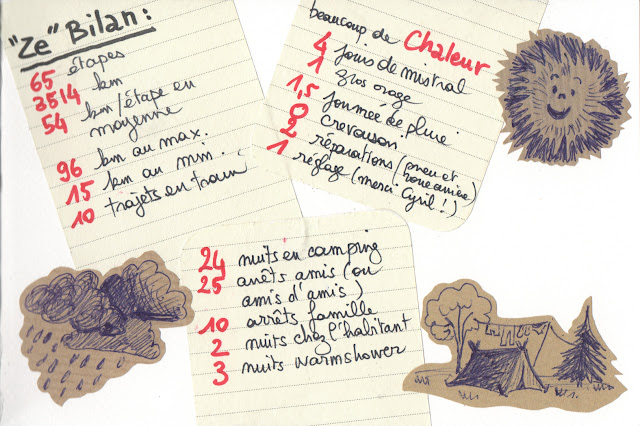 "Ze" Bilan:
65 étapes
3514 km
54 km/étape en
moyenne
96 km au max.
15 km au min.
10 trajets en train
beaucoup de Chaleur
4 jours de mistral
1 gros orage
1,5 journée de pluie
0 crevaison
2 réparations (pneu et
roue arrière)
1 réglage (merci Cyril !)
24 nuits en camping
25 arrêts amis (ou
amis d'amis)
10 arrêts famille
2 nuits chez l'habitant
3 nuits warmshower